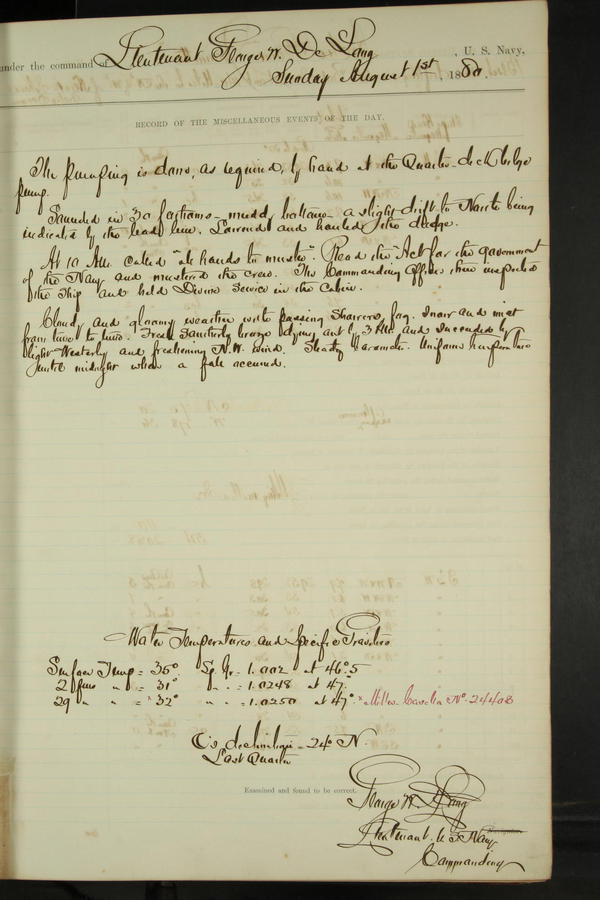 under the command of Lieutenant George W. De Long, U. S. Navy,
Sunday August 1st, 1880.
RECORD OF THE MISCELLANEOUS EVENTS OF THE DAY.
The pumping is done, as required, by hand at the Quarter-deck bilge
pump.
Sounded in 30 fathoms - muddy bottom - a slight drift to North being
indicated by the lead line. Lowered and hauled the dredge.
At 10 AM. called "all hands to muster". Read the "Act for the government
of the Navy and mustered the crew. The Commanding Officer then inspected
the ship and held Divine Service in the Cabin.
Cloudy and gloomy weather with passing showers, fog, snow and mist
from time to time. Fresh Southerly breeze dying out by 3 PM and succeeded by a
light Westerly and freshening N.W. wind. Steady barometer. Uniform temperature
until midnight when a fall occurred.
Water Temperatures and Specific Gravities
Surface Temp = 35° Sp. Gr. = 1.002 at 46°.5
2 fms " = 31° " " = 1.0248 at 47°
29 " " = 32° " " = 1.0250 at 47° * Miller Casella No. 24408
C's declination - 24° N.
Last Quarter
Examined and found to be correct.
George W. De Long
Lieutenant U. S. Navy
Commanding